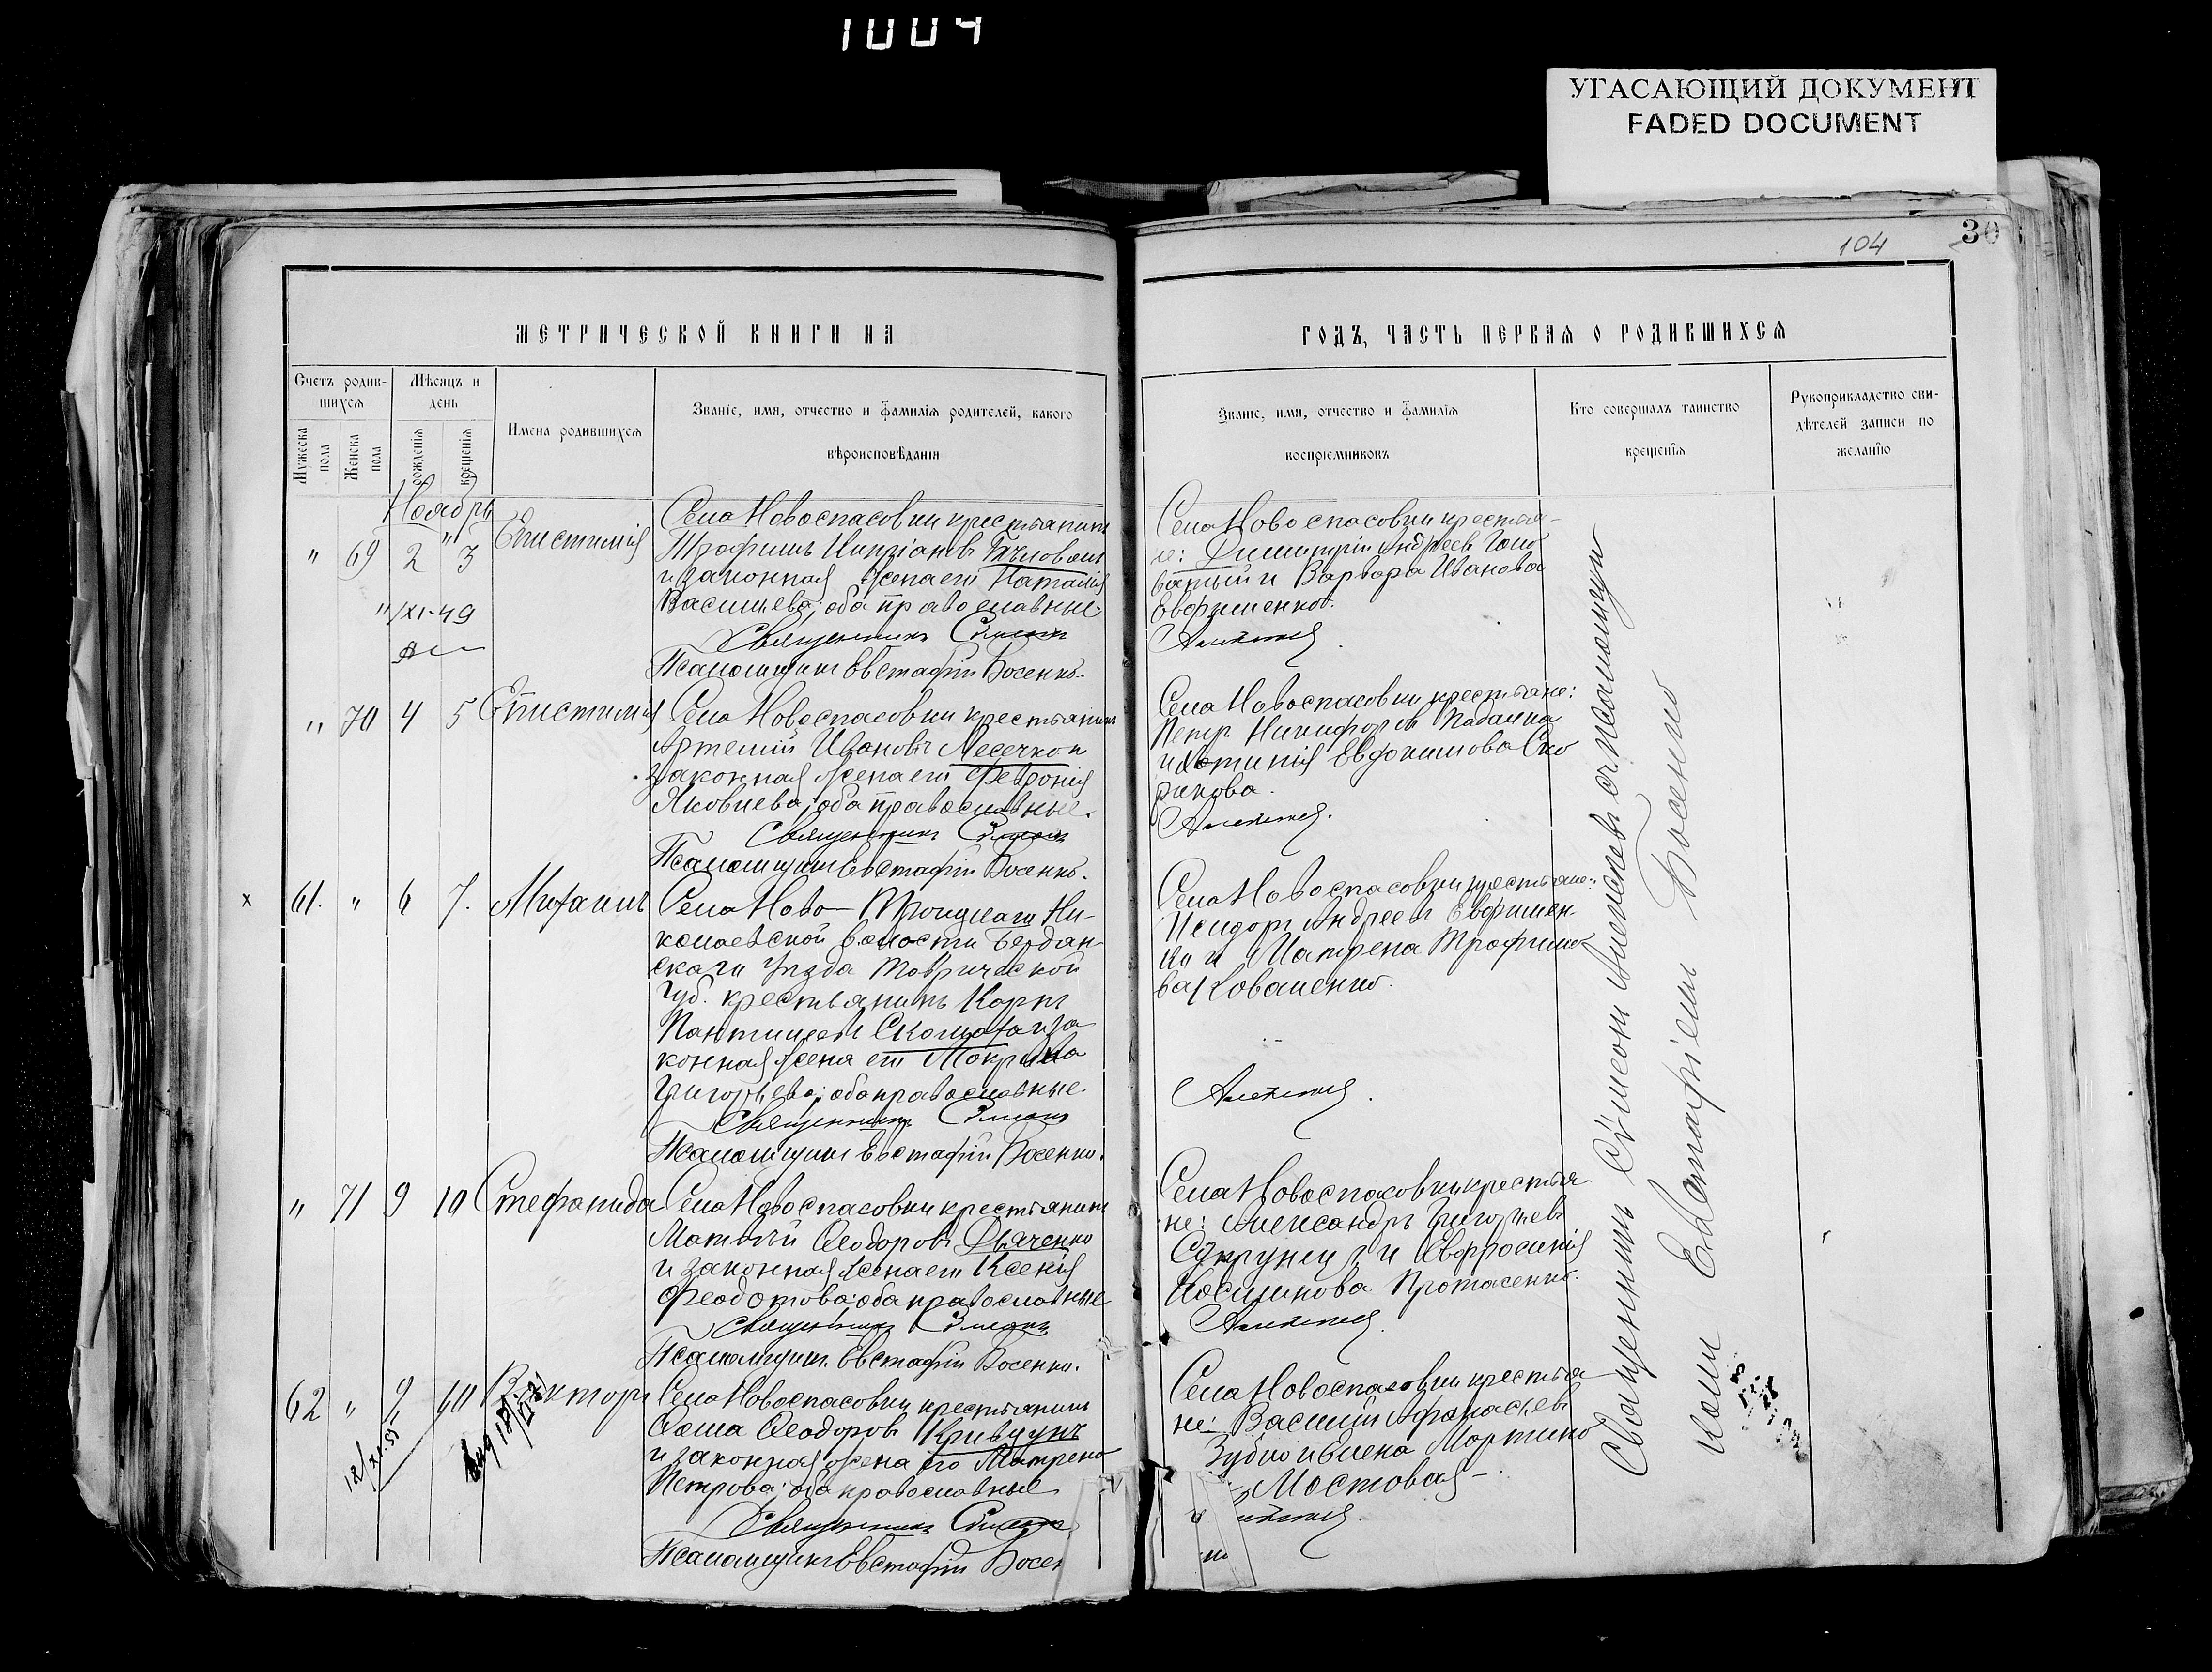 1004
УГАСАЮЩИЙ ДОКУМЕНТ
FADED DOCUMENT
30
104
МЕТРИЧЕСКОЙ КНИГИ НА
ГОДЪ, ЧАСТЬ ПЕРВАЯ О РОДИВШИХСЯ
Счетъ родив-
шихся
Мужеска пола
Женска пола
Мѣсяцъ и
день
рожденія
крещенія
Имена родившихся
Званіе, имя, отчество и фамилія родителей, какого
вѣроисповѣданія
Званіе, имя, отчество и фамилія
воспріемниковъ
Кто совершалъ таинство
крещенія
Рукоприкладство сви-
дѣтелей записи по
желанію
Ноябрь
" 69 2 " 3 Епистимія
"/XI-49
Села Новоспасовки крестьянинъ
Трофимъ Кипріановъ
и законная жена его Наталія
Васильева; оба православные.
Священникъ
Псаломщикъ Евстафій Босенко.
Села Новоспасовки крестья-
не: Димитрій Андреевъ Голо
ватый и Варвара Иванова
Евфименкова.
" 70 4 5 Епистимія
Села Новоспасовки крестьянинъ
Артемій Ивановъ и
законная жена его Феѵронія
Яковлева; оба православные.
Священникъ
Псаломщикъ Евстафій Босенко.
Села Новоспасовки крестьяне:
Петръ Никифоровъ Падалка
и Фотинія Евдокимова Ско
рикова.
х 61. " 6 7. Михаилъ
Села Ново-Троицкаго Ни-
колаевской волости Бердян-
скаго уѣзда Таврической
губ. крестьянинъ Карпъ
и за
конная жена его Макрина
Григорьева; оба православные
Священникъ
Псаломщикъ Евстафій Босенко.
Села Новоспасовки крестьяне:
Исидоръ Андреевъ Евфимен-
ко и Матрена Трофимо
ва Коваленко.
" 71 9 10 Стефанида
Села Новоспасовки крестьянинъ
Матвѣй Ѳеодоровъ Дьяченко
и законная жена его Ксенія
Феодотова; оба православные
Священникъ
Псаломщикъ Евстафій Босенко.
Села Новоспасовки крестья-
не: Александръ Григорьевъ
и Евфросинія
Протасенко.
62 " 9 10 Викторъ
Села Новоспасовки крестьянинъ
Ѳома Ѳеодоровъ Кривцунъ
и законная жена его Матрена
Петрова; оба православные
Священникъ
Псаломщикъ Евстафій Босен
Села Новоспасовки крестья-
не: Василій Афанасьевъ
Зубко и Елена Мартино
Мостовая
Священникъ Сѵмеонъ Алексѣевъ съ псаломщи
комъ Евстафіемъ Босенко